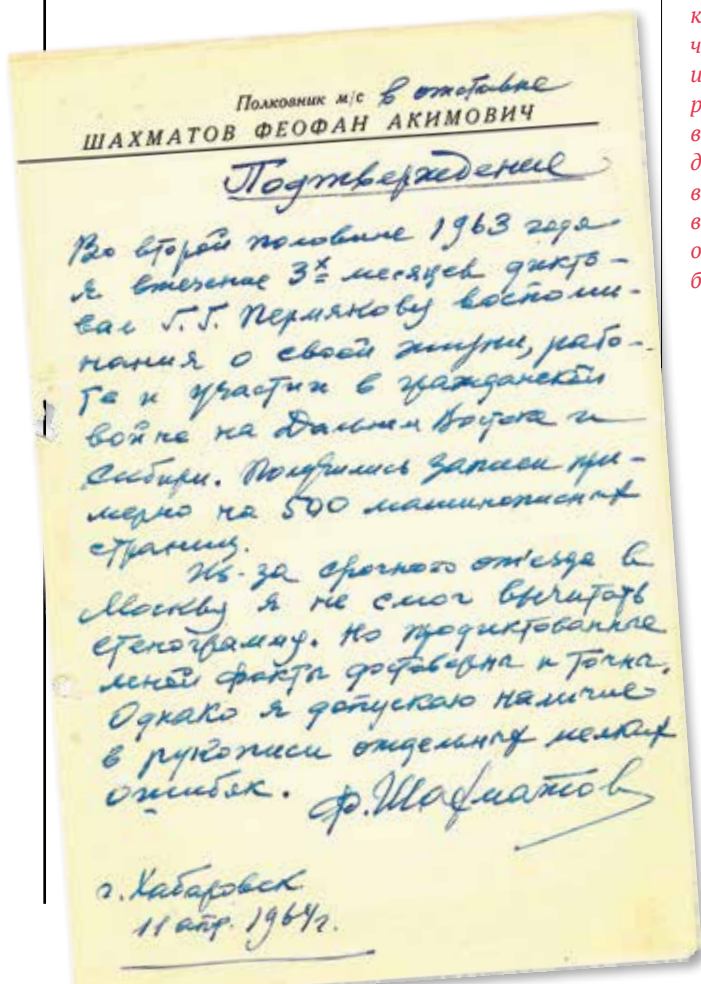 Полковник м/с в отставке
ШАХМАТОВ ФЕОФАН АКИМОВИЧ
Подтверждение
Во второй половине 1963 года
я втечение 3х месяцев дикто-
вал Г.Г. Пермякову воспоми-
нания о своей жизни, рабо-
те и участии в гражданской
войне на Дальнем Востоке и
Сибири. Получились записи при-
мерно на 500 машинописных
страниц.
Из-за срочного от'езда в
Москву я не смог вычитать
стенограмму. Но продиктованные
мной факты достоверны и точны.
Однако я допускаю наличие
в рукописи отдельных мелких
ошибок.
Ф. Шахматов
г. Хабаровск
11 апр. 1964 г.
к
ч
и
р
в
д
в
в
о
б